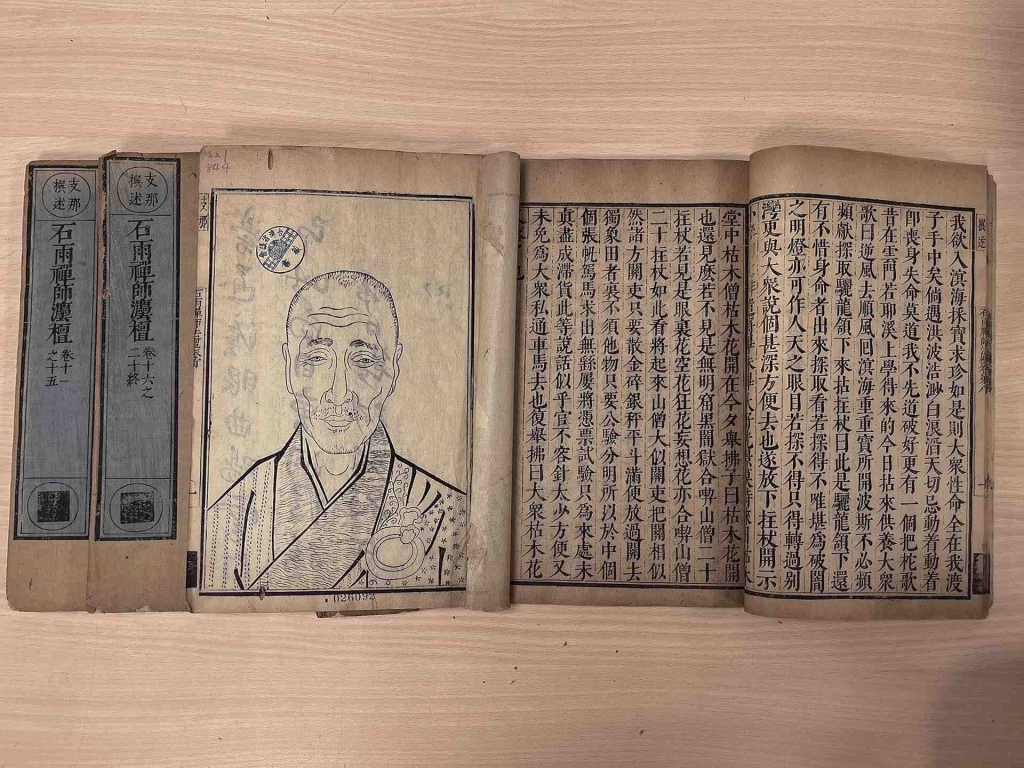 支那
撰述
石雨禪師灋檀
卷十一
之十五
支那
撰述
石雨禪師灋檀
卷十六之
二十終
221
844
026092
堂中枯木僧枯木花開在今夕舉拂子曰枯木花開
也還見麽若不見是無明窟黑闇獄合喫山僧二十
拄杖若見是眼裏花空花狂花妄想花亦合喫山僧
二十拄杖如此看將起來山僧大似關吏把關相似
然諸方關吏只要散金碎銀秤平斗滿便放過關去
獨象田者裏不須他物只要公驗分明所以於中個
個張帆駕馬來出無繇屢將憑票試驗只爲來處未
眞盡成滯貨此等說話似乎官不容針太少方便又
未免爲大衆私通車馬去也復舉拂曰大衆枯木花
我欲入溟海採寶求珍如是則大衆性命全在我渡
子手中矣倘遇洪波浩渺白浪滔天切忌動着動着
卽喪身失命莫道我不先道破好更有一個把柁歌
昔在雲門若耶溪上學得來的今日拈來供養大衆
歌曰逆風去順風回溟海重重寶所開波斯不必頻
頻獻探取驪龍頷下來拈拄杖曰此是驪龍頷下還
有不惜身命者出來探取看若探得不唯堪爲破闇
之明燈亦可作人天之眼目若探不得只得轉過别
灣更與大衆說個甚深方便去也遂放下拄杖開示